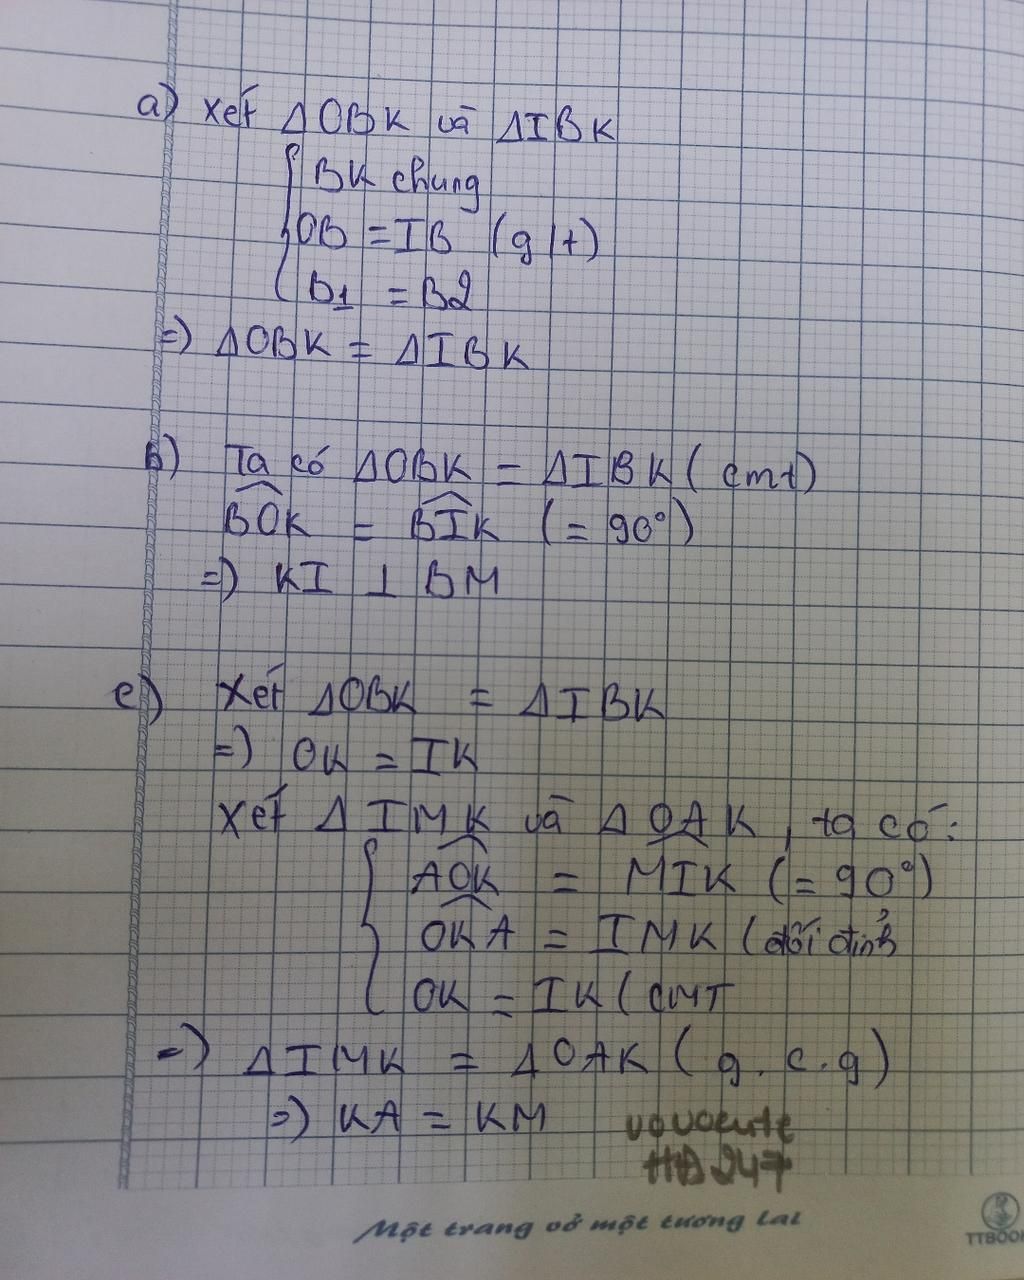 a) Xét ΔOBK và ΔIBK
BK chung
OB = IB (g/t)
B1 = B2
=) ΔOBK = ΔIBK
b) Ta có ΔOBK = ΔIBK (cmt)
\widehat{BOK} = \widehat{BIK} (= 90°)
=) KI ⊥ BM
c) Xét ΔOBK = ΔIBK
=) OK = IK
Xét ΔIMK và ΔOAK, ta có:
\widehat{AOK} = \widehat{MIK} (= 90°)
\widehat{OKA} = IMK (đối đỉnh
OK = IK (CMT
=) ΔIMK = ΔOAK (g.c.g)
=) KA = KM
vovocute
HD247
Một trang vở một tương lai
TTBOOK